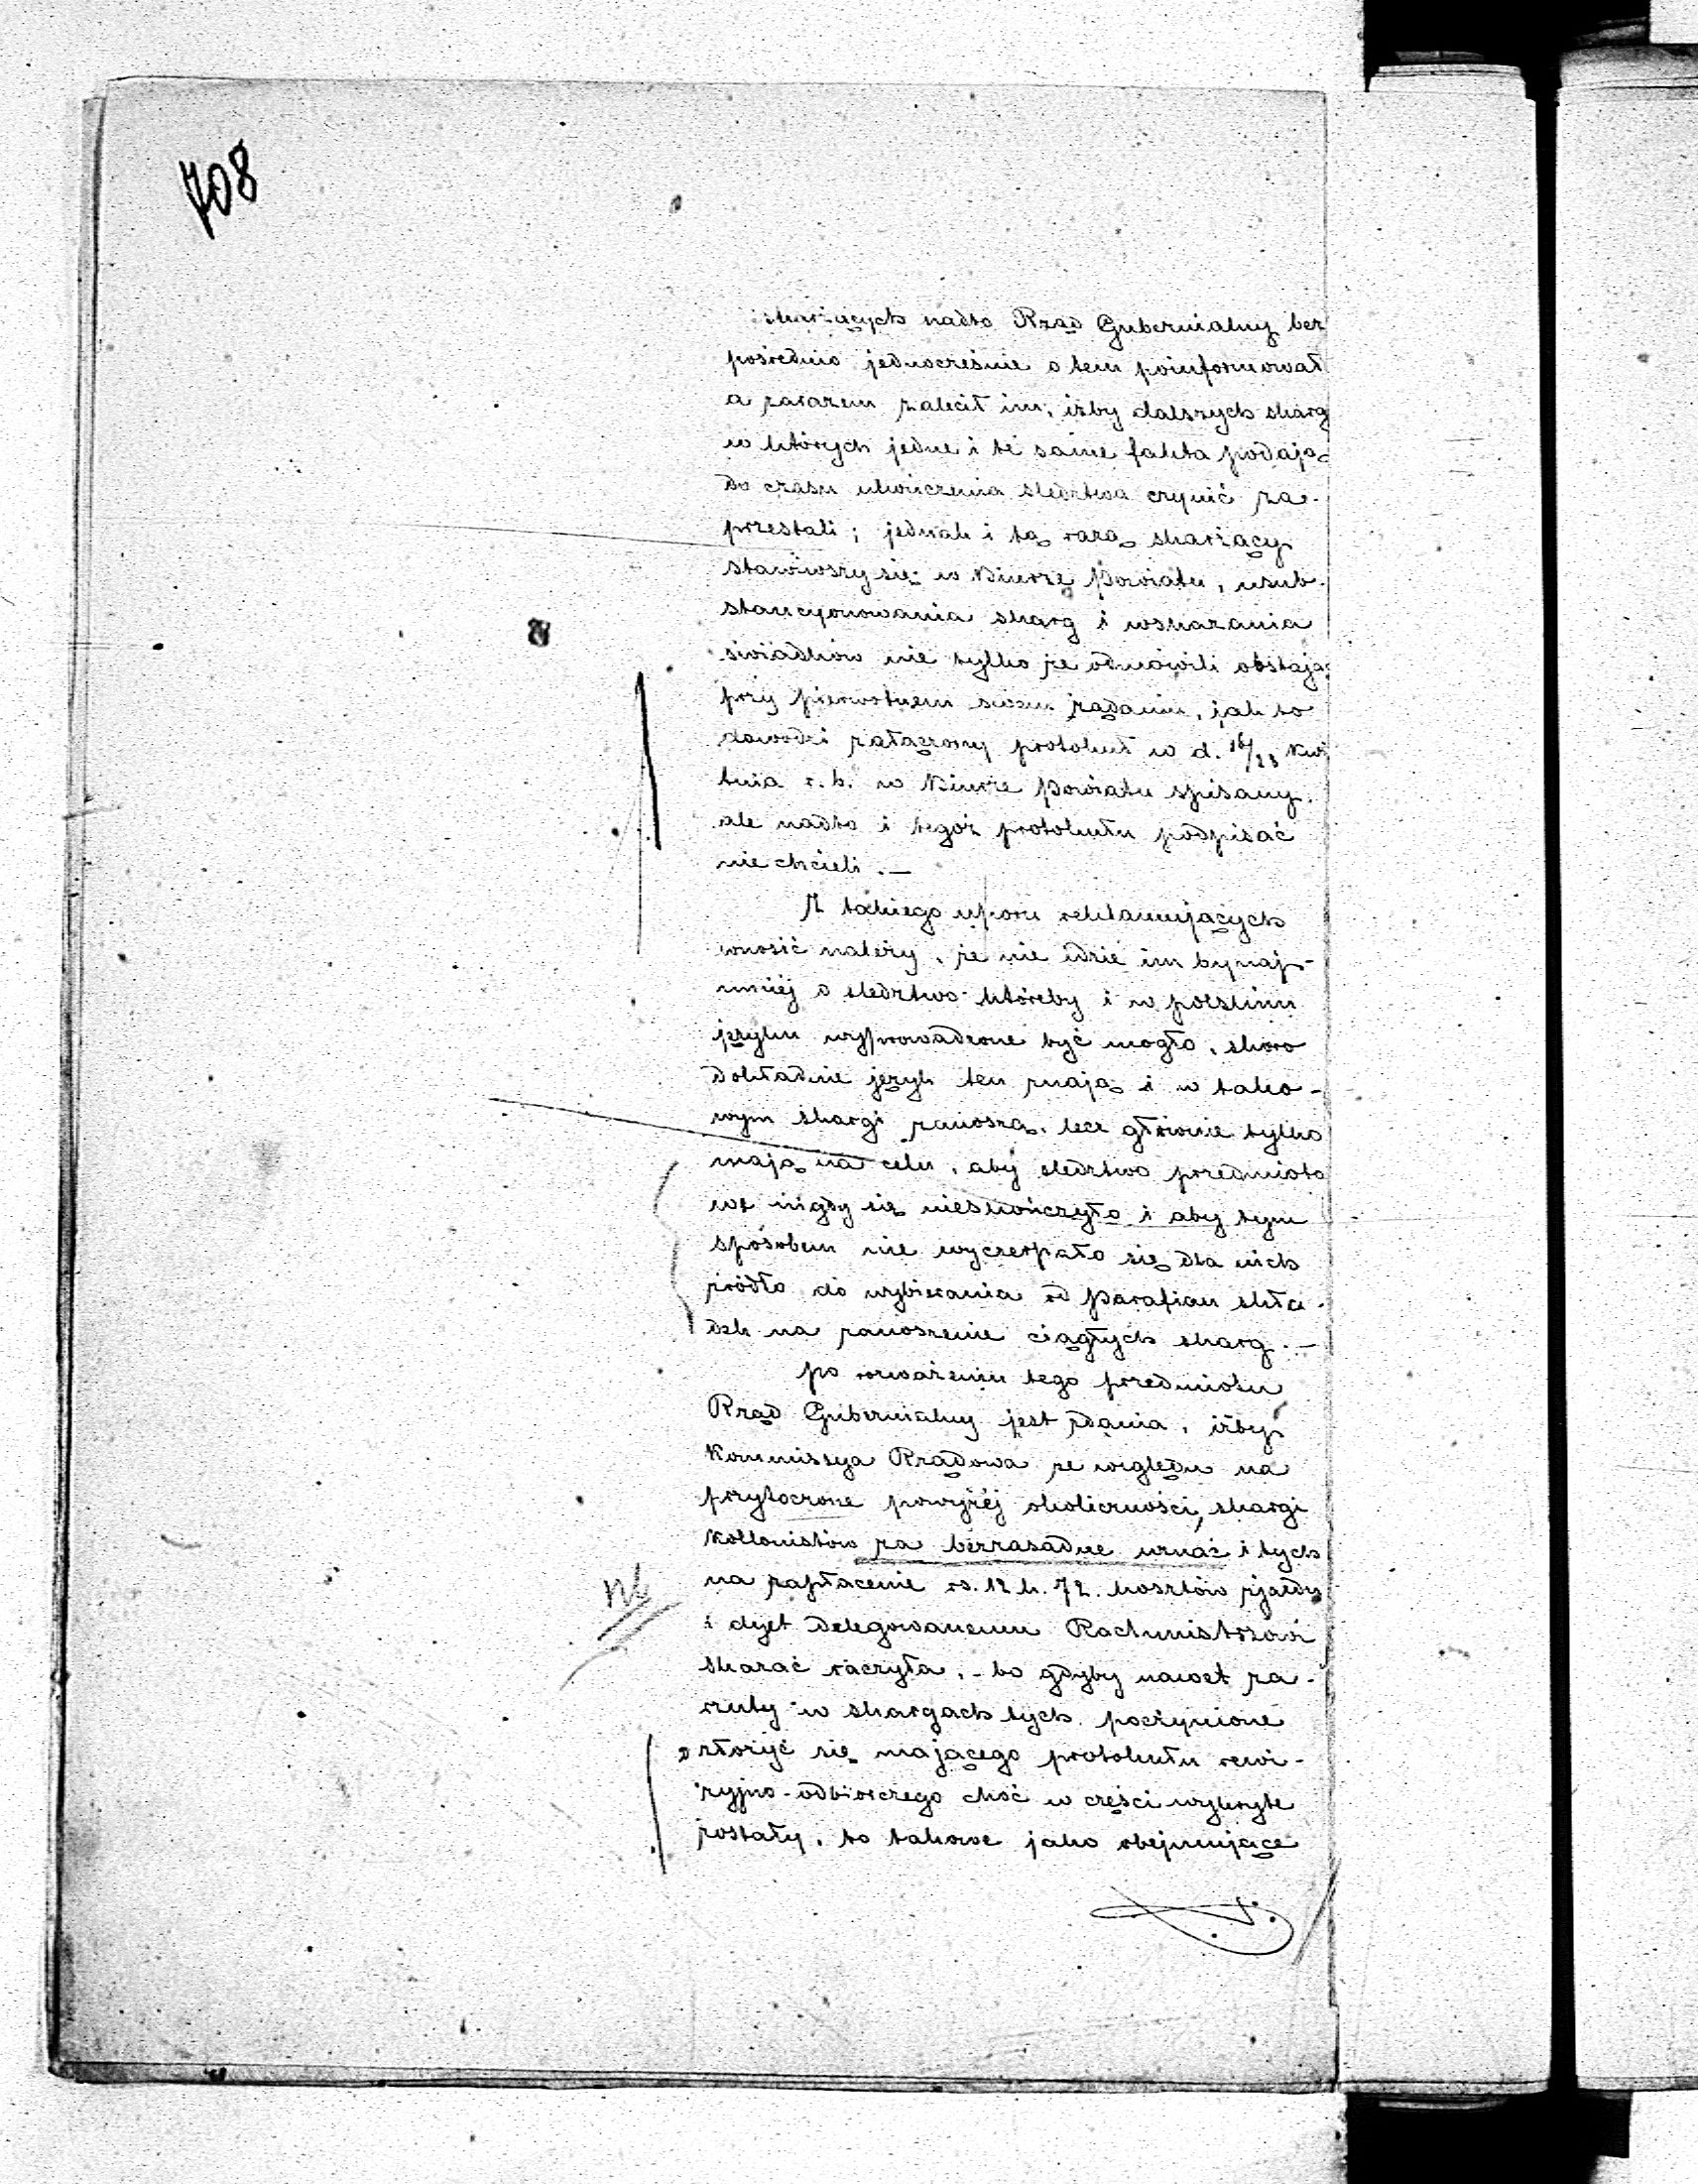 708
skarżących nadto Rząd Gubernialny bez
pośrednio jednocześnie o tem poinformował
a zarazem zalecił im, iżby dalszych skarg
w których jedne i te same fakta podają
do czasu ukończenia śledztwa czynić za-
przestali; jednak i tą razą skarżący
stawiwszy się w Biurze Powiatu, usub-
stancyonowania skarg i wskazania
świadków nie tylko że odmówili obstając
przy pierwotnem swem żądaniu, jak to
dowodzi załączony protokuł w d. 16/28 Kwi
tnia r. b. w Biurze Powiatu spisany,
ale nadto i tegoż protokułu podpisać
nie chcieli. —
Z takiego uporu reklamujących
wnosić należy, że nie idzie im bynaj-
mniéj o śledztwo któreby i w polskim
języku wyprowadzone być mogło, skoro
dokładnie język ten znają i w tako-
wym skargi zanoszą, lecz głównie tylko
mają na celu, aby śledztwo przedmioto
we nigdy się nieskończyło i aby tym
sposobem nie wyczerpało się dla nich
źródło do wybierania od Parafian skła-
dek na zanoszenie ciągłych skarg. —
Po rozważeniu tego przedmiotu
Rząd Gubernialny jest zdania, iżby
Kommissya Rządowa ze względu na
przytoczone powyżéj okoliczności, skargi
Kollonistów za bezzasadne uznać i tych
na zapłacenie rs. 12 k. 72. kosztów zjazdu
i dyet Delegowanemu Rachmistrzowi
skazać raczyła, - bo gdyby nawet za-
rzuty w skargach tych poczynione
złożyć się mającego protokułu rewi-
zyjno-odbiorczego choć w części wykryte
zostały, to takowe jako obejmujące
Nb